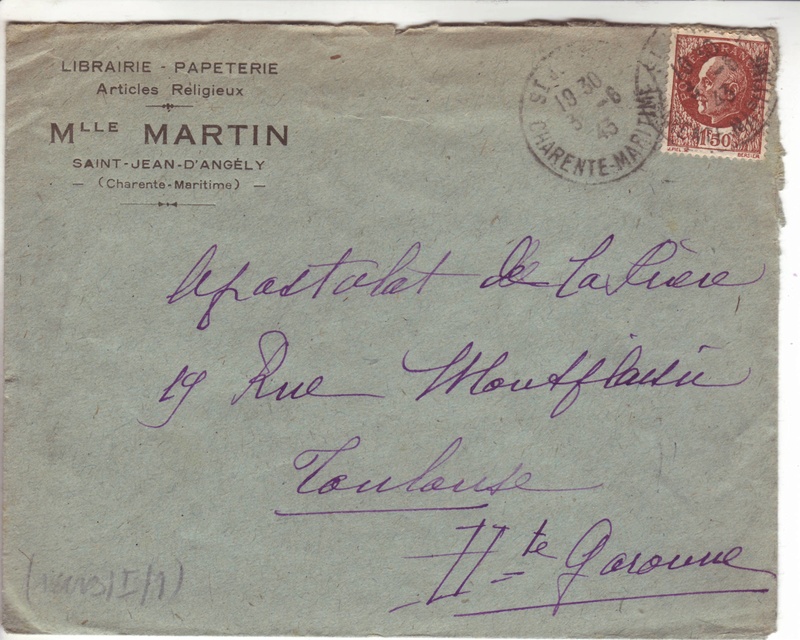 LIBRAIRIE - PAPETERIE
Articles Réligieux
MLLE MARTIN
SAINT-JEAN-D'ANGÉLY
— (Charente-Maritime) —
ST J
18 30
5 -6
43
CHARENTE-MARITIME
1F50
BERSIER
Apostolat de la Prière
19 Rue Montplaisir
Toulouse
Hte Garonne